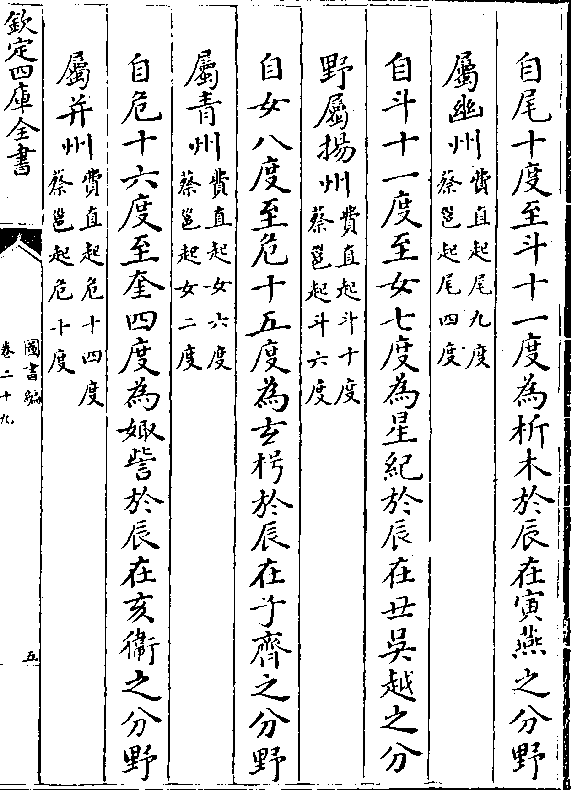 自尾十度至斗十一度為析木於辰在寅燕之分野
屬幽州費直起尾九度
蔡邕起尾四度
自斗十一度至女七度為星紀於辰在丑吳越之分
野屬揚州費直起斗十度
蔡邕起斗六度
自女八度至危十五度為玄枵於辰在子齊之分野
屬青州費直起女六度
蔡邕起女二度
自危十六度至奎四度為娵訾於辰在亥衞之分野
屬并州費直起危十四度
蔡邕起危十度
欽定四庫全書
圖書編
卷二十九
五